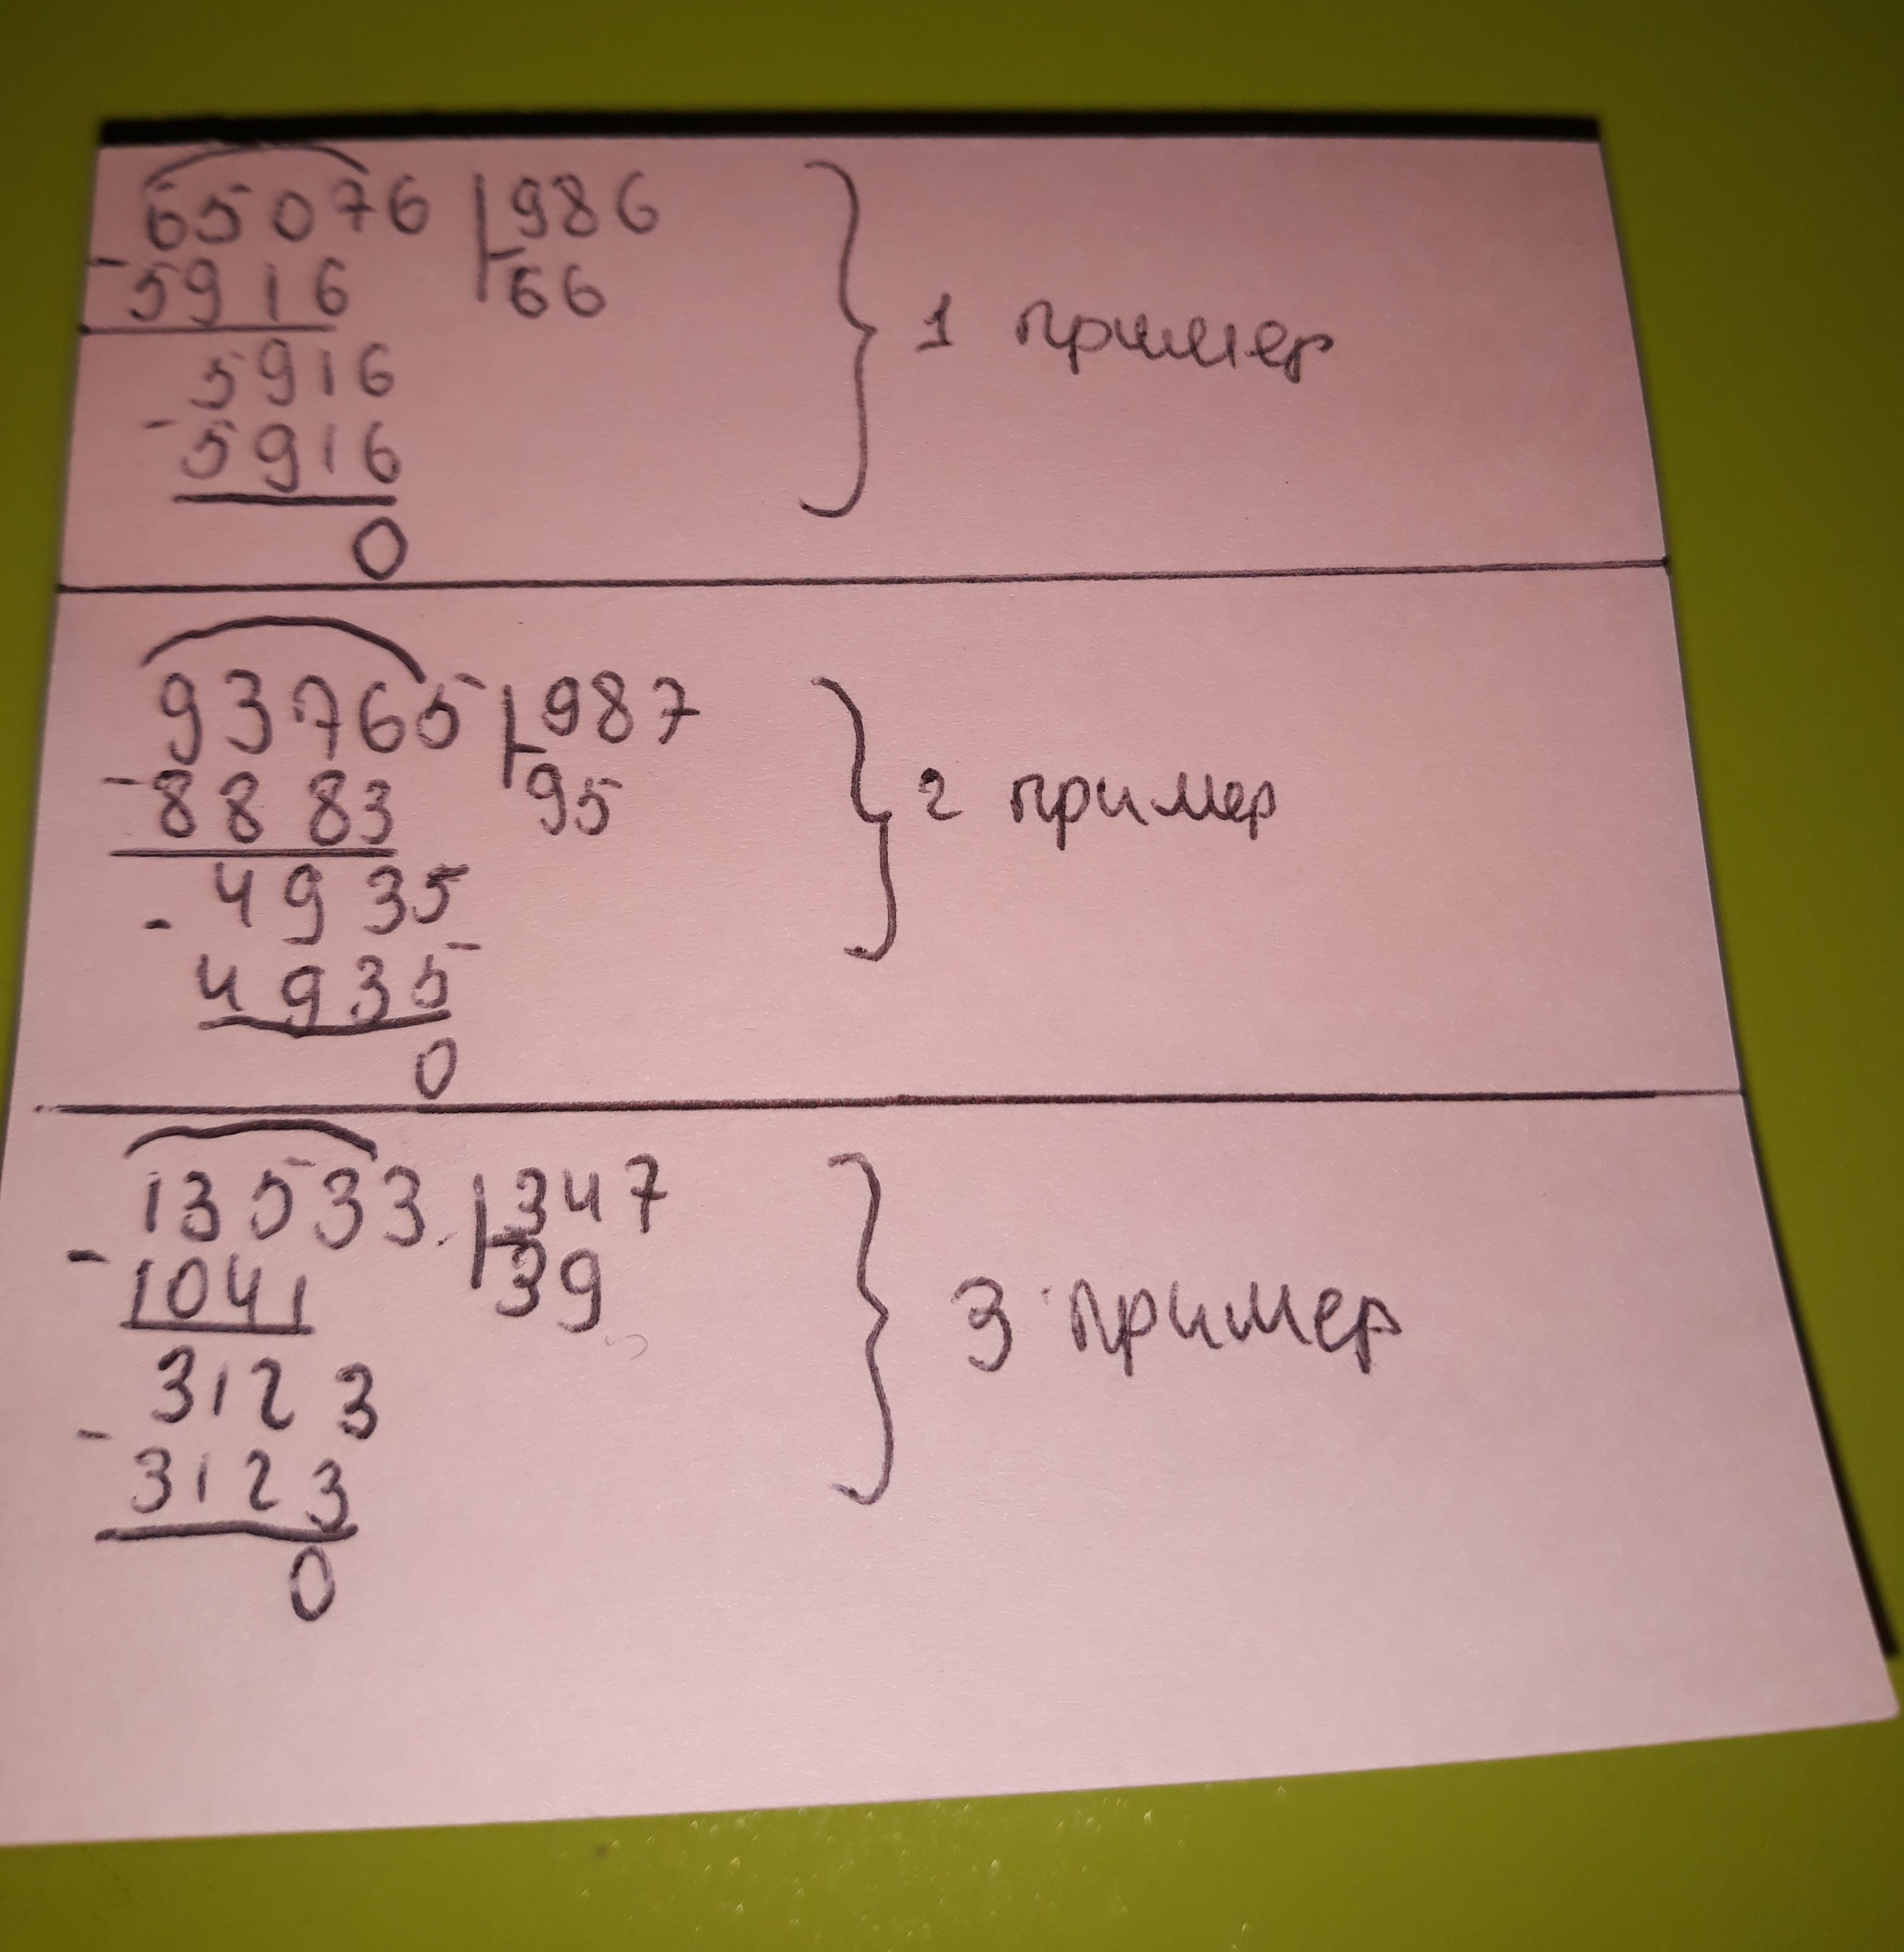 65076 986
-5916 66
5916
-5916
0
1 пример
93765 987
-8883 95
4935
-4935
0
2 пример
13533 347
-1041 39
3123
-3123
0
3 пример